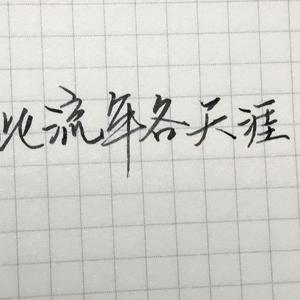 此流年各天涯